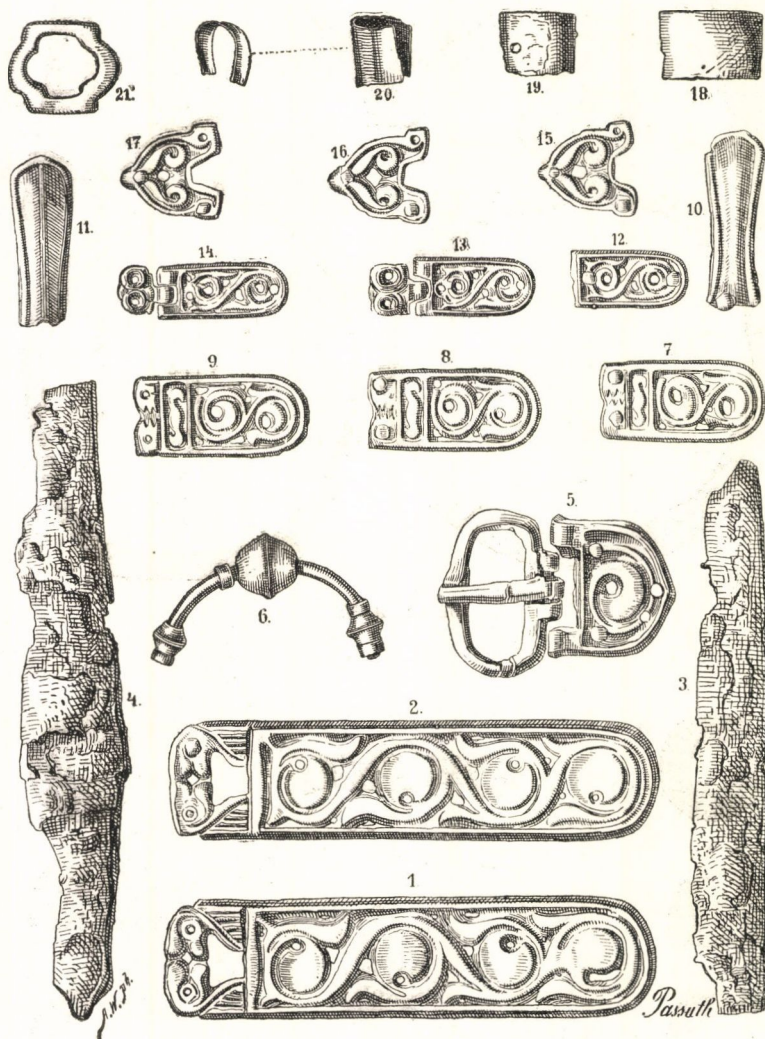 21.
20.
19.
18.
17.
16.
15.
11.
10.
14.
13.
12.
9
8.
7
5.
6.
4.
3.
2.
1
Passuth